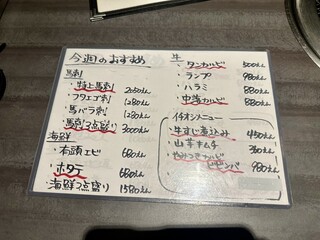 今週のおすすめ
馬刺
・特上馬刺 2050えん
・フタエゴ刺 1280えん
・馬バラ刺 1280えん
・馬刺3点盛り 3000えん
海鮮
・有頭エビ 680えん
・ホタテ 680えん
・海鮮3点盛り 1580えん
牛
・タンカルビ 500えん
・ランプ 980えん
・ハラミ 880えん
・中落カルビ 880えん
イチオシメニュー
・牛すじ煮込み 450えん
・山芋キムチ 360えん
・やみつきカルビ
ビビンバ 980えん